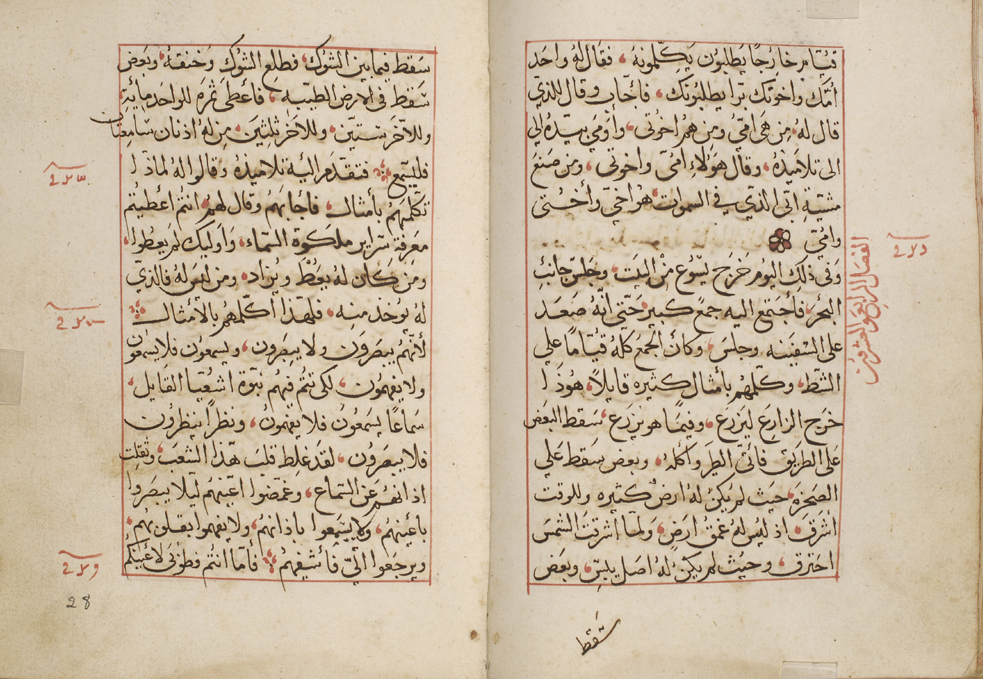 قيام خارجا يطلبون يكلمونه، فقال له واحد
امّك واخوتك برا يطلبونك، فاجاب وقال للذي
قال له من هي امي ومن هم اخوتي، واومى بيده الي
الى تلاميذه، وقال هولاء امي واخوتي، ومن صنع
مشية ابي الذي في السموات هو اخي وأختي
وامي
وفي ذلك اليوم خرج يسوع من البيت، وجلس جانب
البحر، فاجتمع اليه جمع كبير حتى انه صعد
على السفينه وجلس، وكان الجمع كله قياما علي
الشط، وكلمهم بأمثال كثيره قايلا، هوذا
خرج الزارع ليزرع، وفيما هو يزرع سقط البعض
على الطريق فاتى الطير واكله، وبعض سقط علي
الصخره حيث لم يكن له ارض كثيره وللوقت
اشرق، اذ ليس له عمق ارض، ولما اشرقت الشمس
احترق، وحيث لم يكن له اصل يبس، وبعض
سقط
الفصل الرابع والعشرون
سقط فيما بين الشوك فطلع الشوك وخنقه، وبعض
سقط في الارض الطيبه، فأعطى ثمرة للواحد ماية
وللآخر ستين، وللآخر ثلثين، من له اذنان سامعتان
فليسمع فتقدم اليه تلاميذه وقالوا له لماذا
تكلمهم بأمثال، فأجابهم وقال لهم انتم أعطيتم
معرفة سراير ملكوة السماء، واوليك لم يعطوا،
ومن كان له يعط ويزاد، ومن ليس له فالذي
له يوخذ منه، فلهذا اكلمهم بالأمثال
لأنهم يبصرون ولا يبصرون، ويسمعون فلا يسمعون
ولا يفهمون، لكي تتم فيهم نبوة اشعيا القايل،
سماعا يسمعون فلا يفهمون، ونظرا ينظرون
فلا يبصرون، لقد غلظ قلب هذا الشعب وثقلت
اذانهم عن السماع، وغمضوا اعينهم ليلا يبصروا
بأعينهم، ولا يسمعوا باذانهم، ولا يفهموا بقلوبهم،
ويرجعوا الي فأشفيهم فأما انتم فطوبى لاعينكم
28